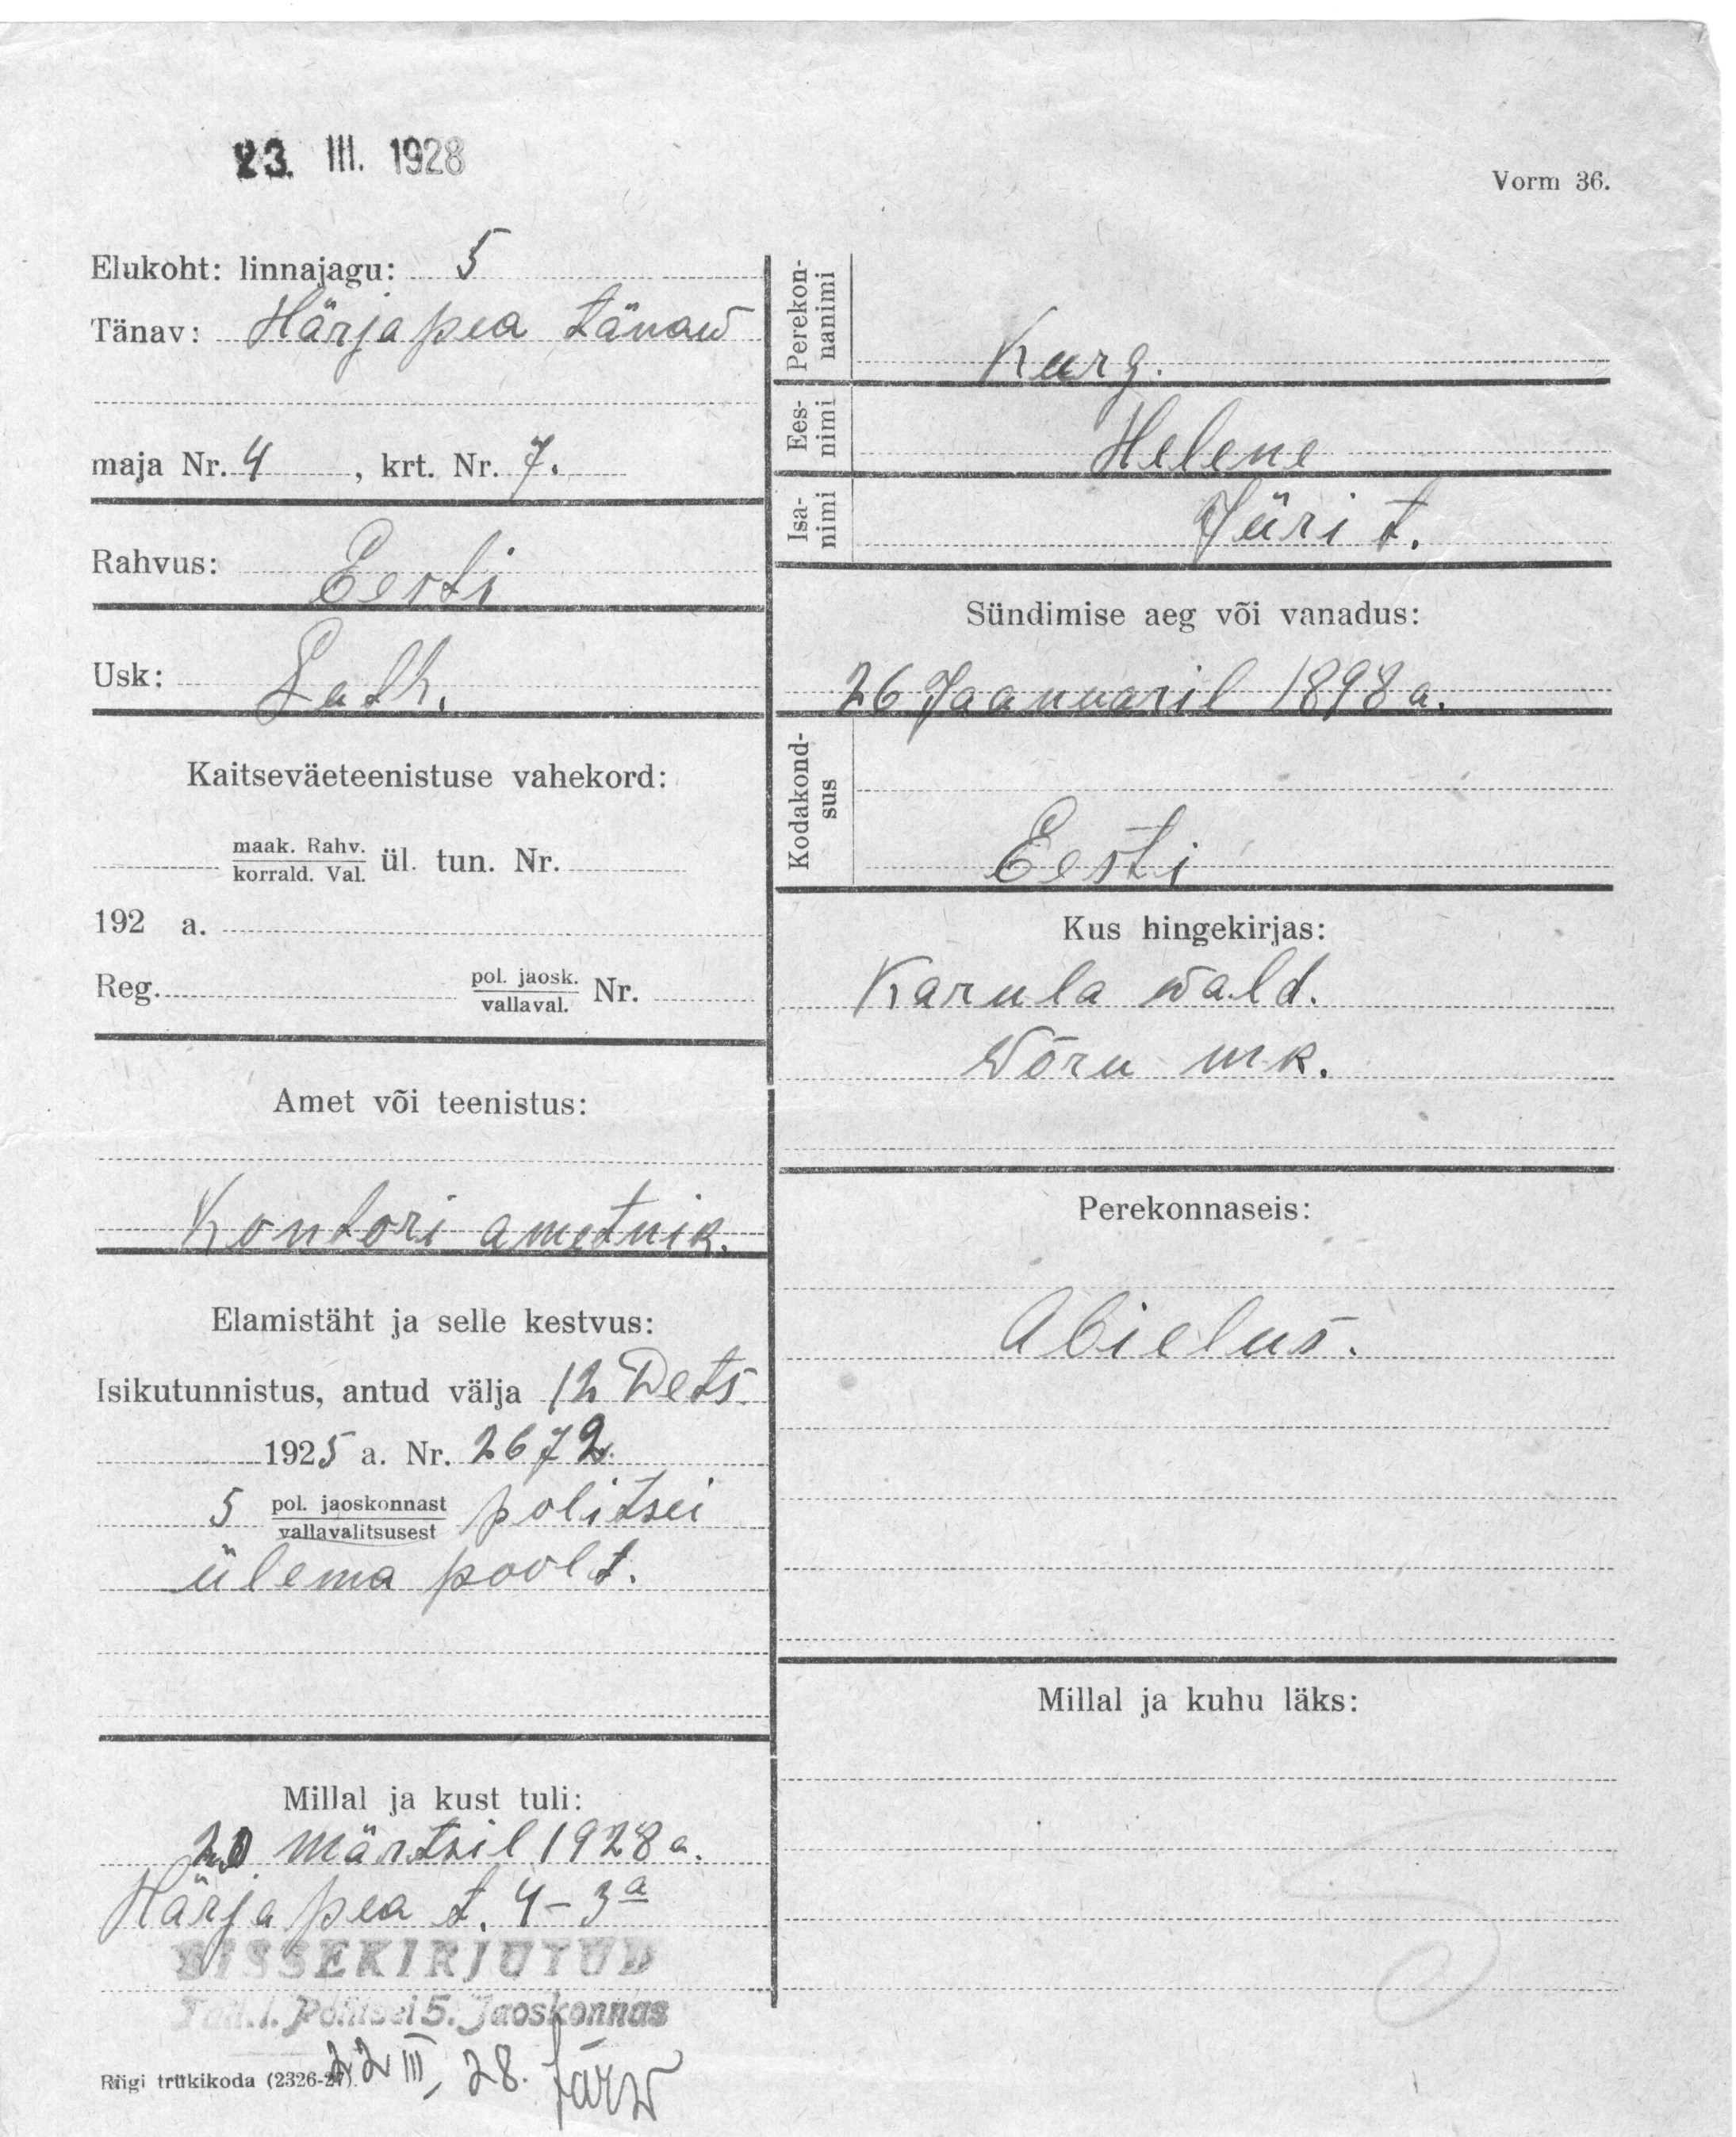 23. III. 1928
Vorm 36.
Elukoht: linnajagu: 5
Tänav: Härjapea tänaw
maja Nr. 4, krt. Nr. 7.
Rahvus: Eesti
Usk: Luth.
Kaitseväeteenistuse vahekord:
maak. Rahv.
korrald. Val. ül. tun. Nr.
192 a.
Reg. pol. jaosk.
vallaval. Nr.
Amet või teenistus:
Kontori ametnik.
Elamistäht ja selle kestvus:
Isikutunnistus, antud välja 12 Dets
1925 a. Nr. 2672.
5 pol. jaoskonnast politsei
vallavalitsusest
ülema poolt.
Millal ja kust tuli:
20 märtsil 1928 a.
Härjapea t. 4-3a
SISSEKIRJUTUD
Tall. l. Politsei 5. Jaoskonnas
22 III 28. Järw
Riigi trükikoda (2326-27).
Perekon-
nanimi
Kurg.
Ees-
nimi
Helene
Isa-
nimi
Jüri t.
Sündimise aeg või vanadus:
26 Jaanuaril 1898 a.
Kodakond-
sus
Eesti
Kus hingekirjas:
Karula wald.
Wõru mk.
Perekonnaseis:
Abielus.
Millal ja kuhu läks: